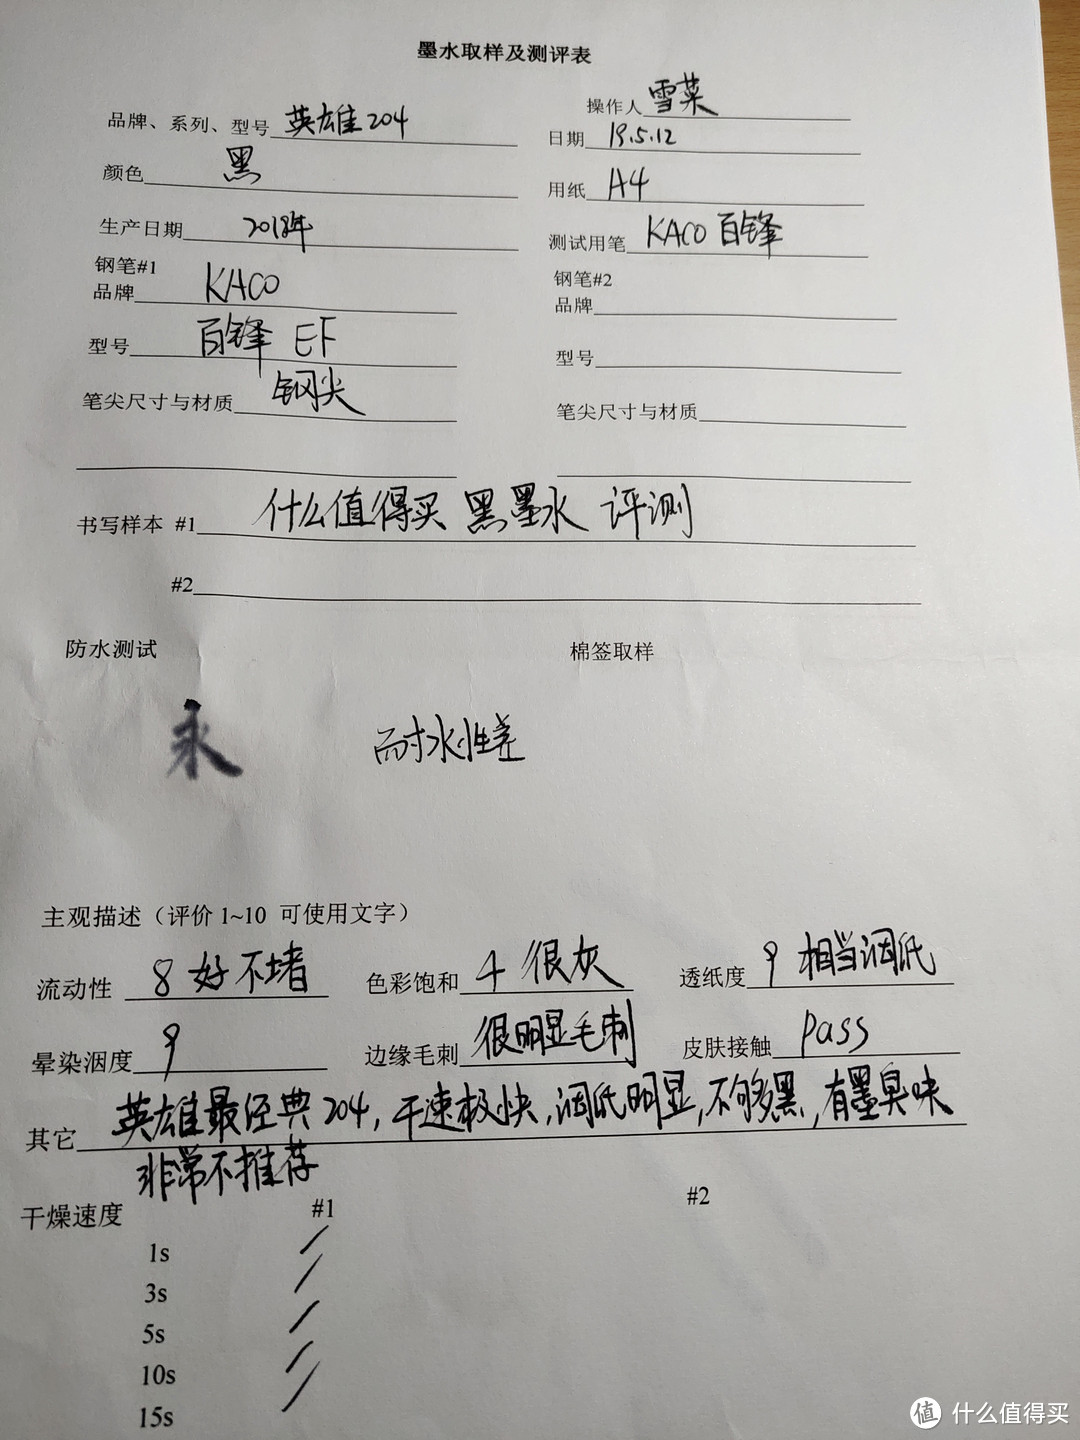 墨水取样及测评表
品牌、系列、型号 英雄204 操作人 雪菜
颜色 黑 日期 19.5.12
生产日期 2018年 用纸 A4
钢笔#1 测试用笔 KACO 百锋
品牌 KACO 钢笔#2
型号 百锋 EF 品牌
笔尖尺寸与材质 钢尖 型号
笔尖尺寸与材质
书写样本 #1 什么值得买 黑墨水 评测
#2
防水测试 棉签取样
永 耐水性差
主观描述（评价 1~10 可使用文字）
流动性 8 好 不堵 色彩饱和 4 很灰 透纸度 9 相当洇纸
晕染洇度 9 边缘毛刺 很明显毛刺 皮肤接触 pass
其它 英雄最经典204，干速极快，洇纸明显，不够黑，有墨臭味
非常不推荐
干燥速度 #1 #2
1s
3s
5s
10s
15s
值 什么值得买